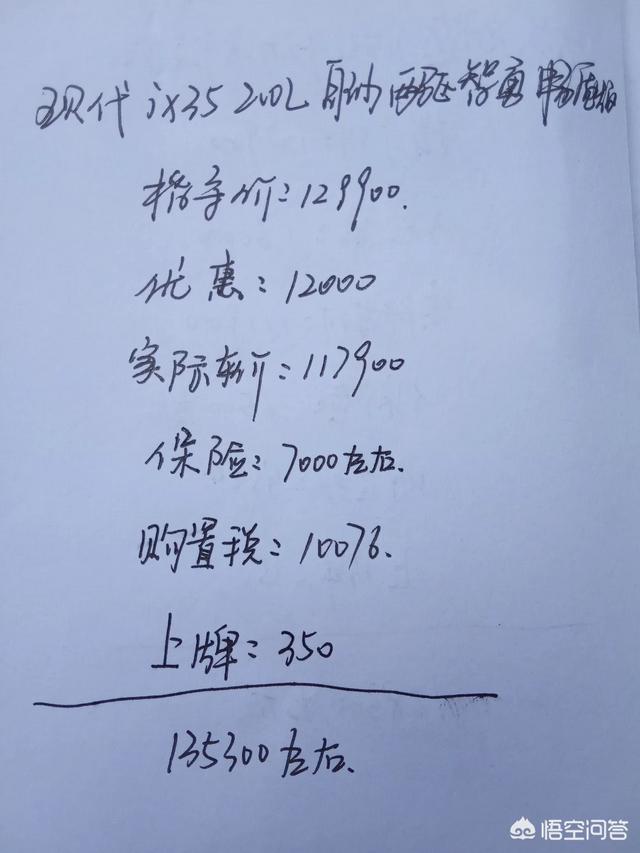 现代 ix35 2.0L 自动两驱智勇·畅质版
指导价：129900.
优惠：12000
实际车价：117900
保险：7000左右.
购置税：10076.
上牌：350
135300左右.
悟空问答